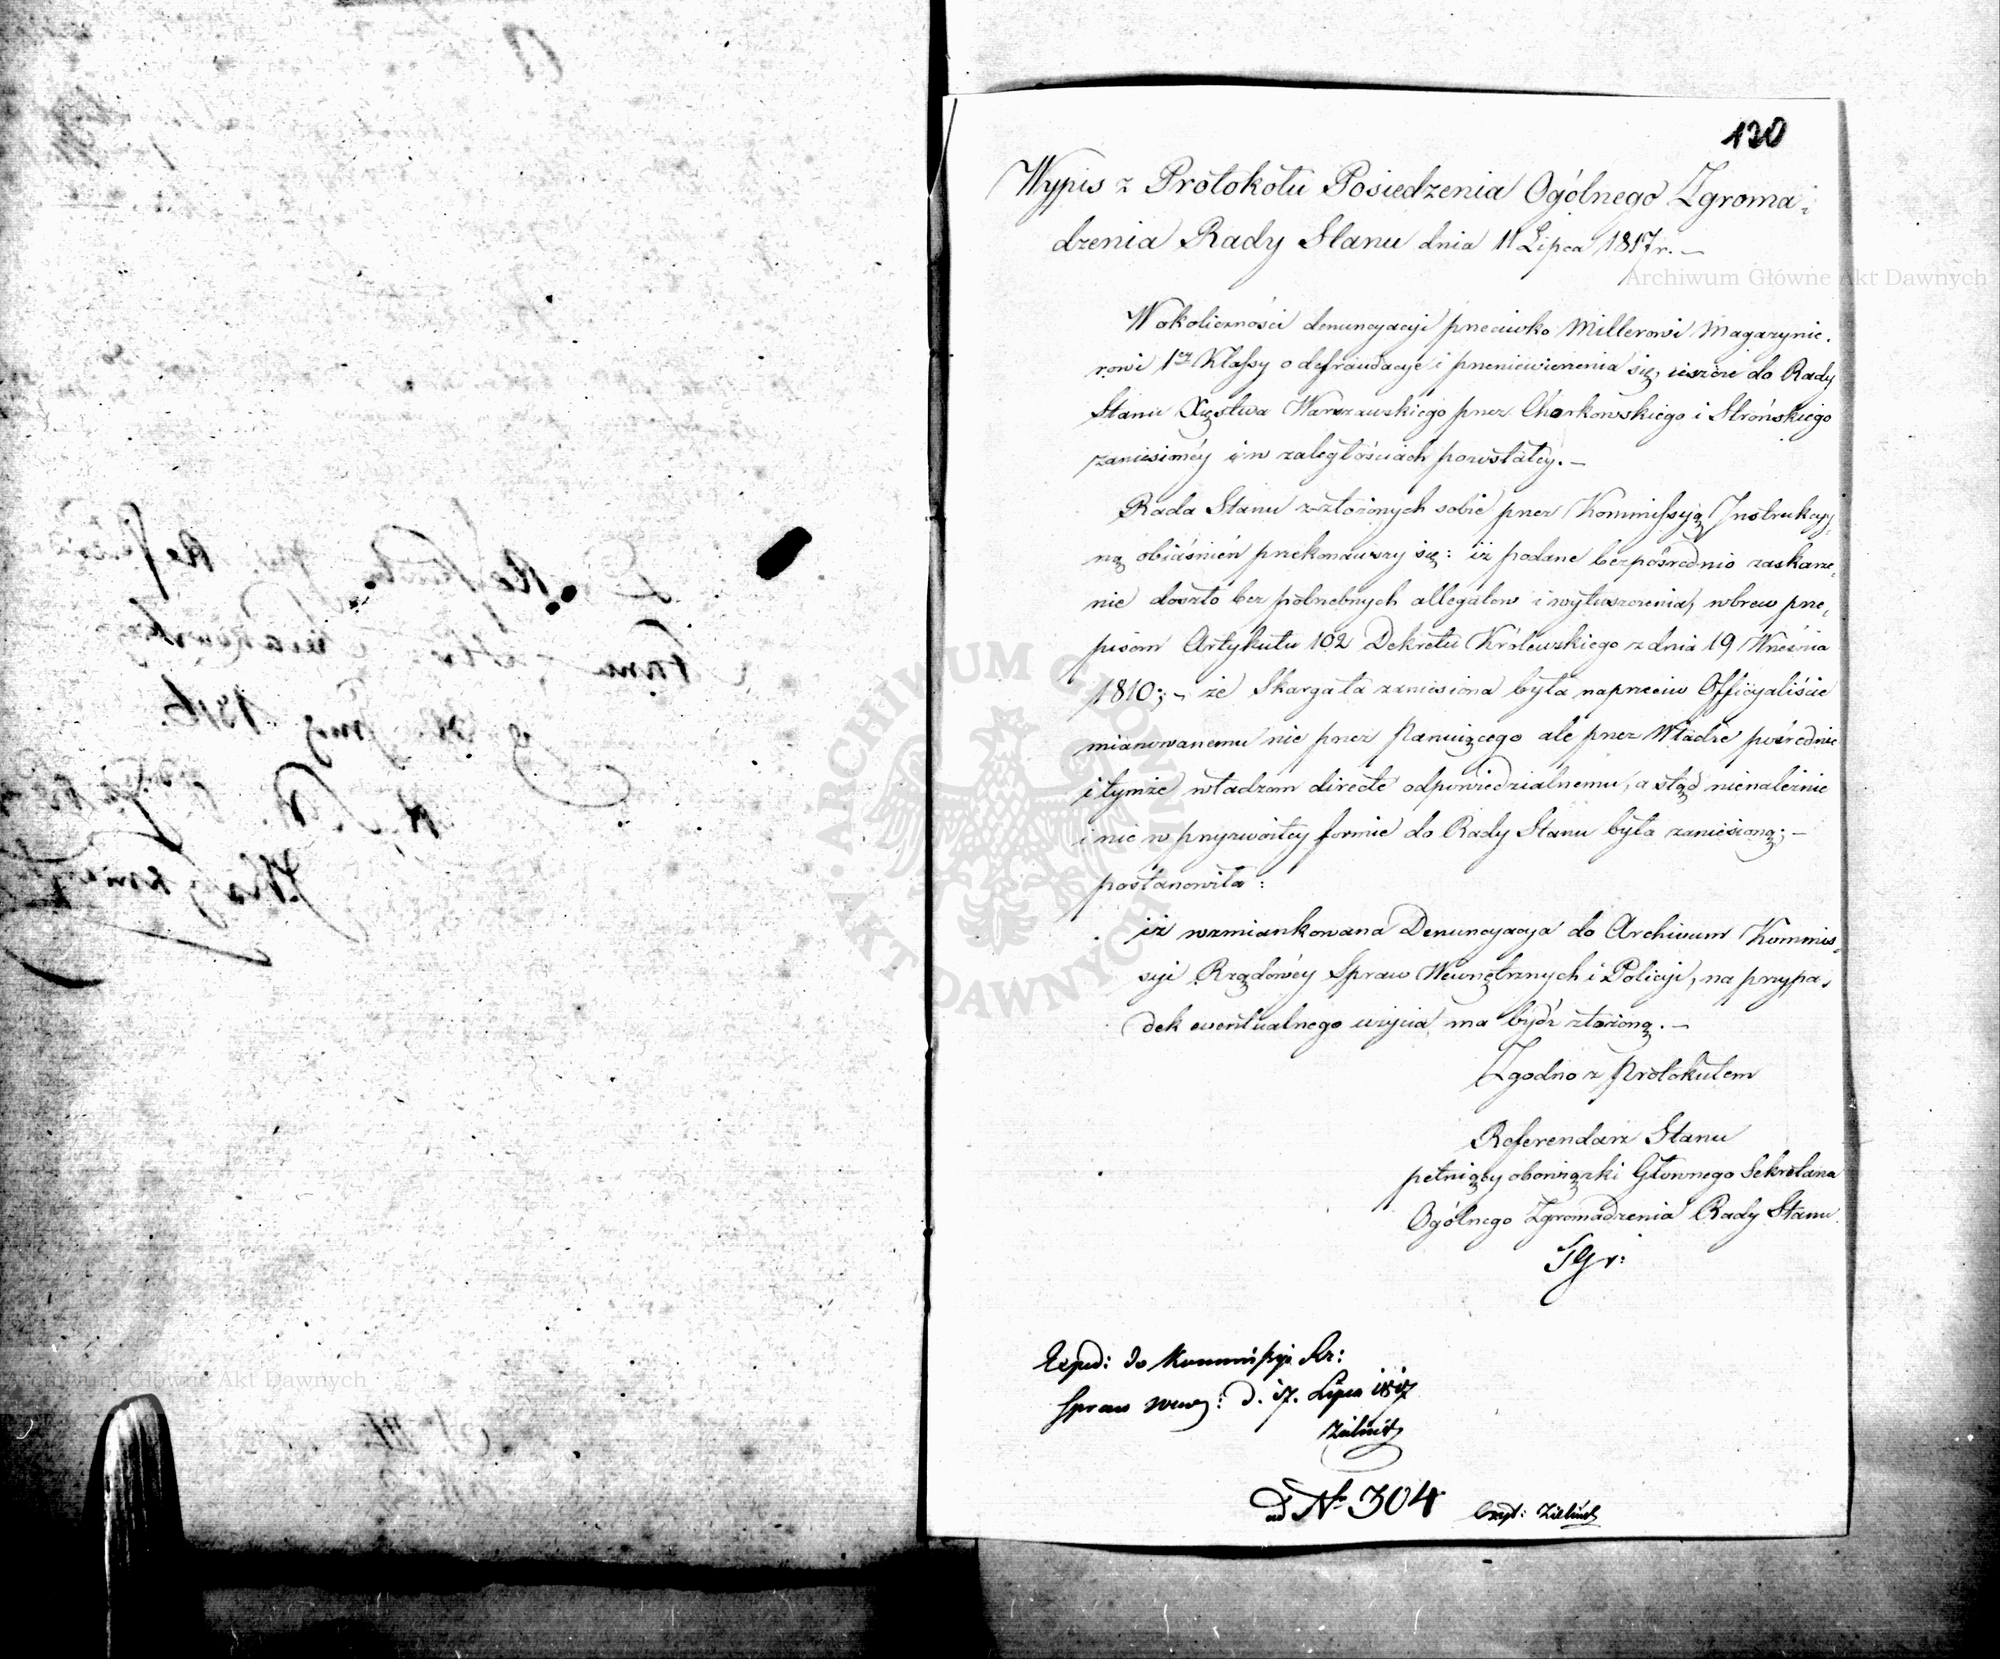 130
Wypis z Protokołu Posiedzenia Ogólnego Zgroma-
dzenia Rady Stanu dnia 11 Lipca 1817 r. —
W okoliczności denuncyacyi przeciwko Millerowi Magazynie-
rowi 1ey Klassy o defraudacye i przeniewierzenia się, ieszcze do Rady
Stanu Xięstwa Warszawskiego przez Charkowskiego i Strońskiego
zaniesionéy i w zaległościach powstałey. —
Rada Stanu z złożonych sobie przez Kommissyą Instrukcyy-
ną obiaśnień przekonawszy się: iż podane bezpośrednio zaskarże-
nie doszło bez potrzebnych allegatow i wyłuszczenia, wbrew prze-
pisom Artykułu 102 Dekretu Królewskiego z dnia 19 Września
1810; — że Skarga ta zaniesiona była naprzeciw Officyaliście
mianowanemu nie przez Panuiącego ale przez Władze pośrednie
i tymże władzom directe odpowiedzialnemu, a stąd nienależnie
i nie w przyzwoitey formie do Rady Stanu była zaniesioną; —
postanowiła:
iż wzmiankowana Denuncyacya do Archiwum Kommis-
syi Rządowéy Spraw Wewnętrznych i Policyi, na przypa-
dek ewentualnego użycia ma bydź złożoną. —
Zgodno z Protokułem
Referendarz Stanu
pełniący obowiązki Głównego Sekretarza
Ogólnego Zgromadzenia Rady Stanu
Exped: do Kommissyi Rz:
Spraw Wew: d. 17. Lipca 1817
ad No 304
Archiwum Główne Akt Dawnych
Archiwum Główne Akt Dawnych
ARCHIWUM GŁÓWNE AKT DAWNYCH